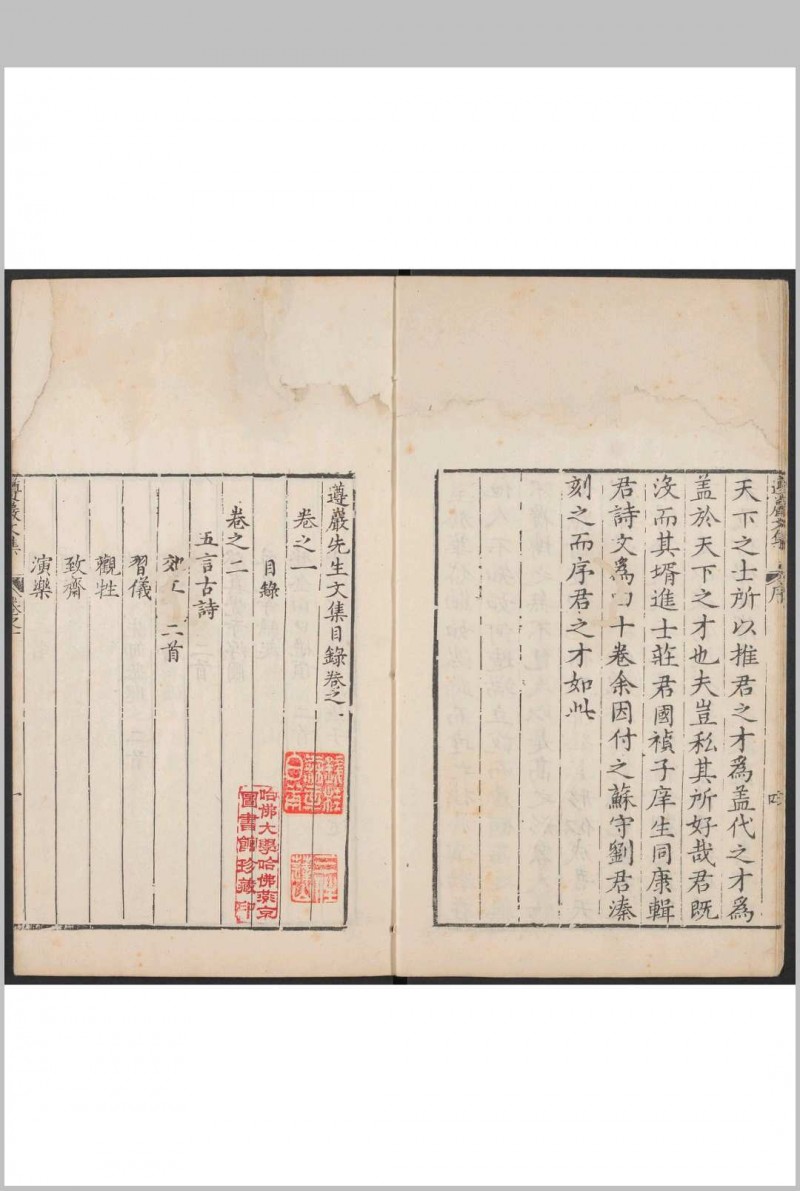 天下之士所以推君之才為盖代之才為
盖於天下之才也夫豈私其所好哉君既
沒而其壻進士莊君國禎子庠生同康輯
君詩文為四十卷余因付之蘇守劉君溱
刻之而序君之才如此
遵巖先生文集目錄卷之一
卷之一
目錄
卷之二
五言古詩
郊工 二首
習儀
觀牲
致齋
演樂
遵巖文集
序
遵巖文集
卷之一
一
哈佛大學哈佛燕京
圖書館珍藏印